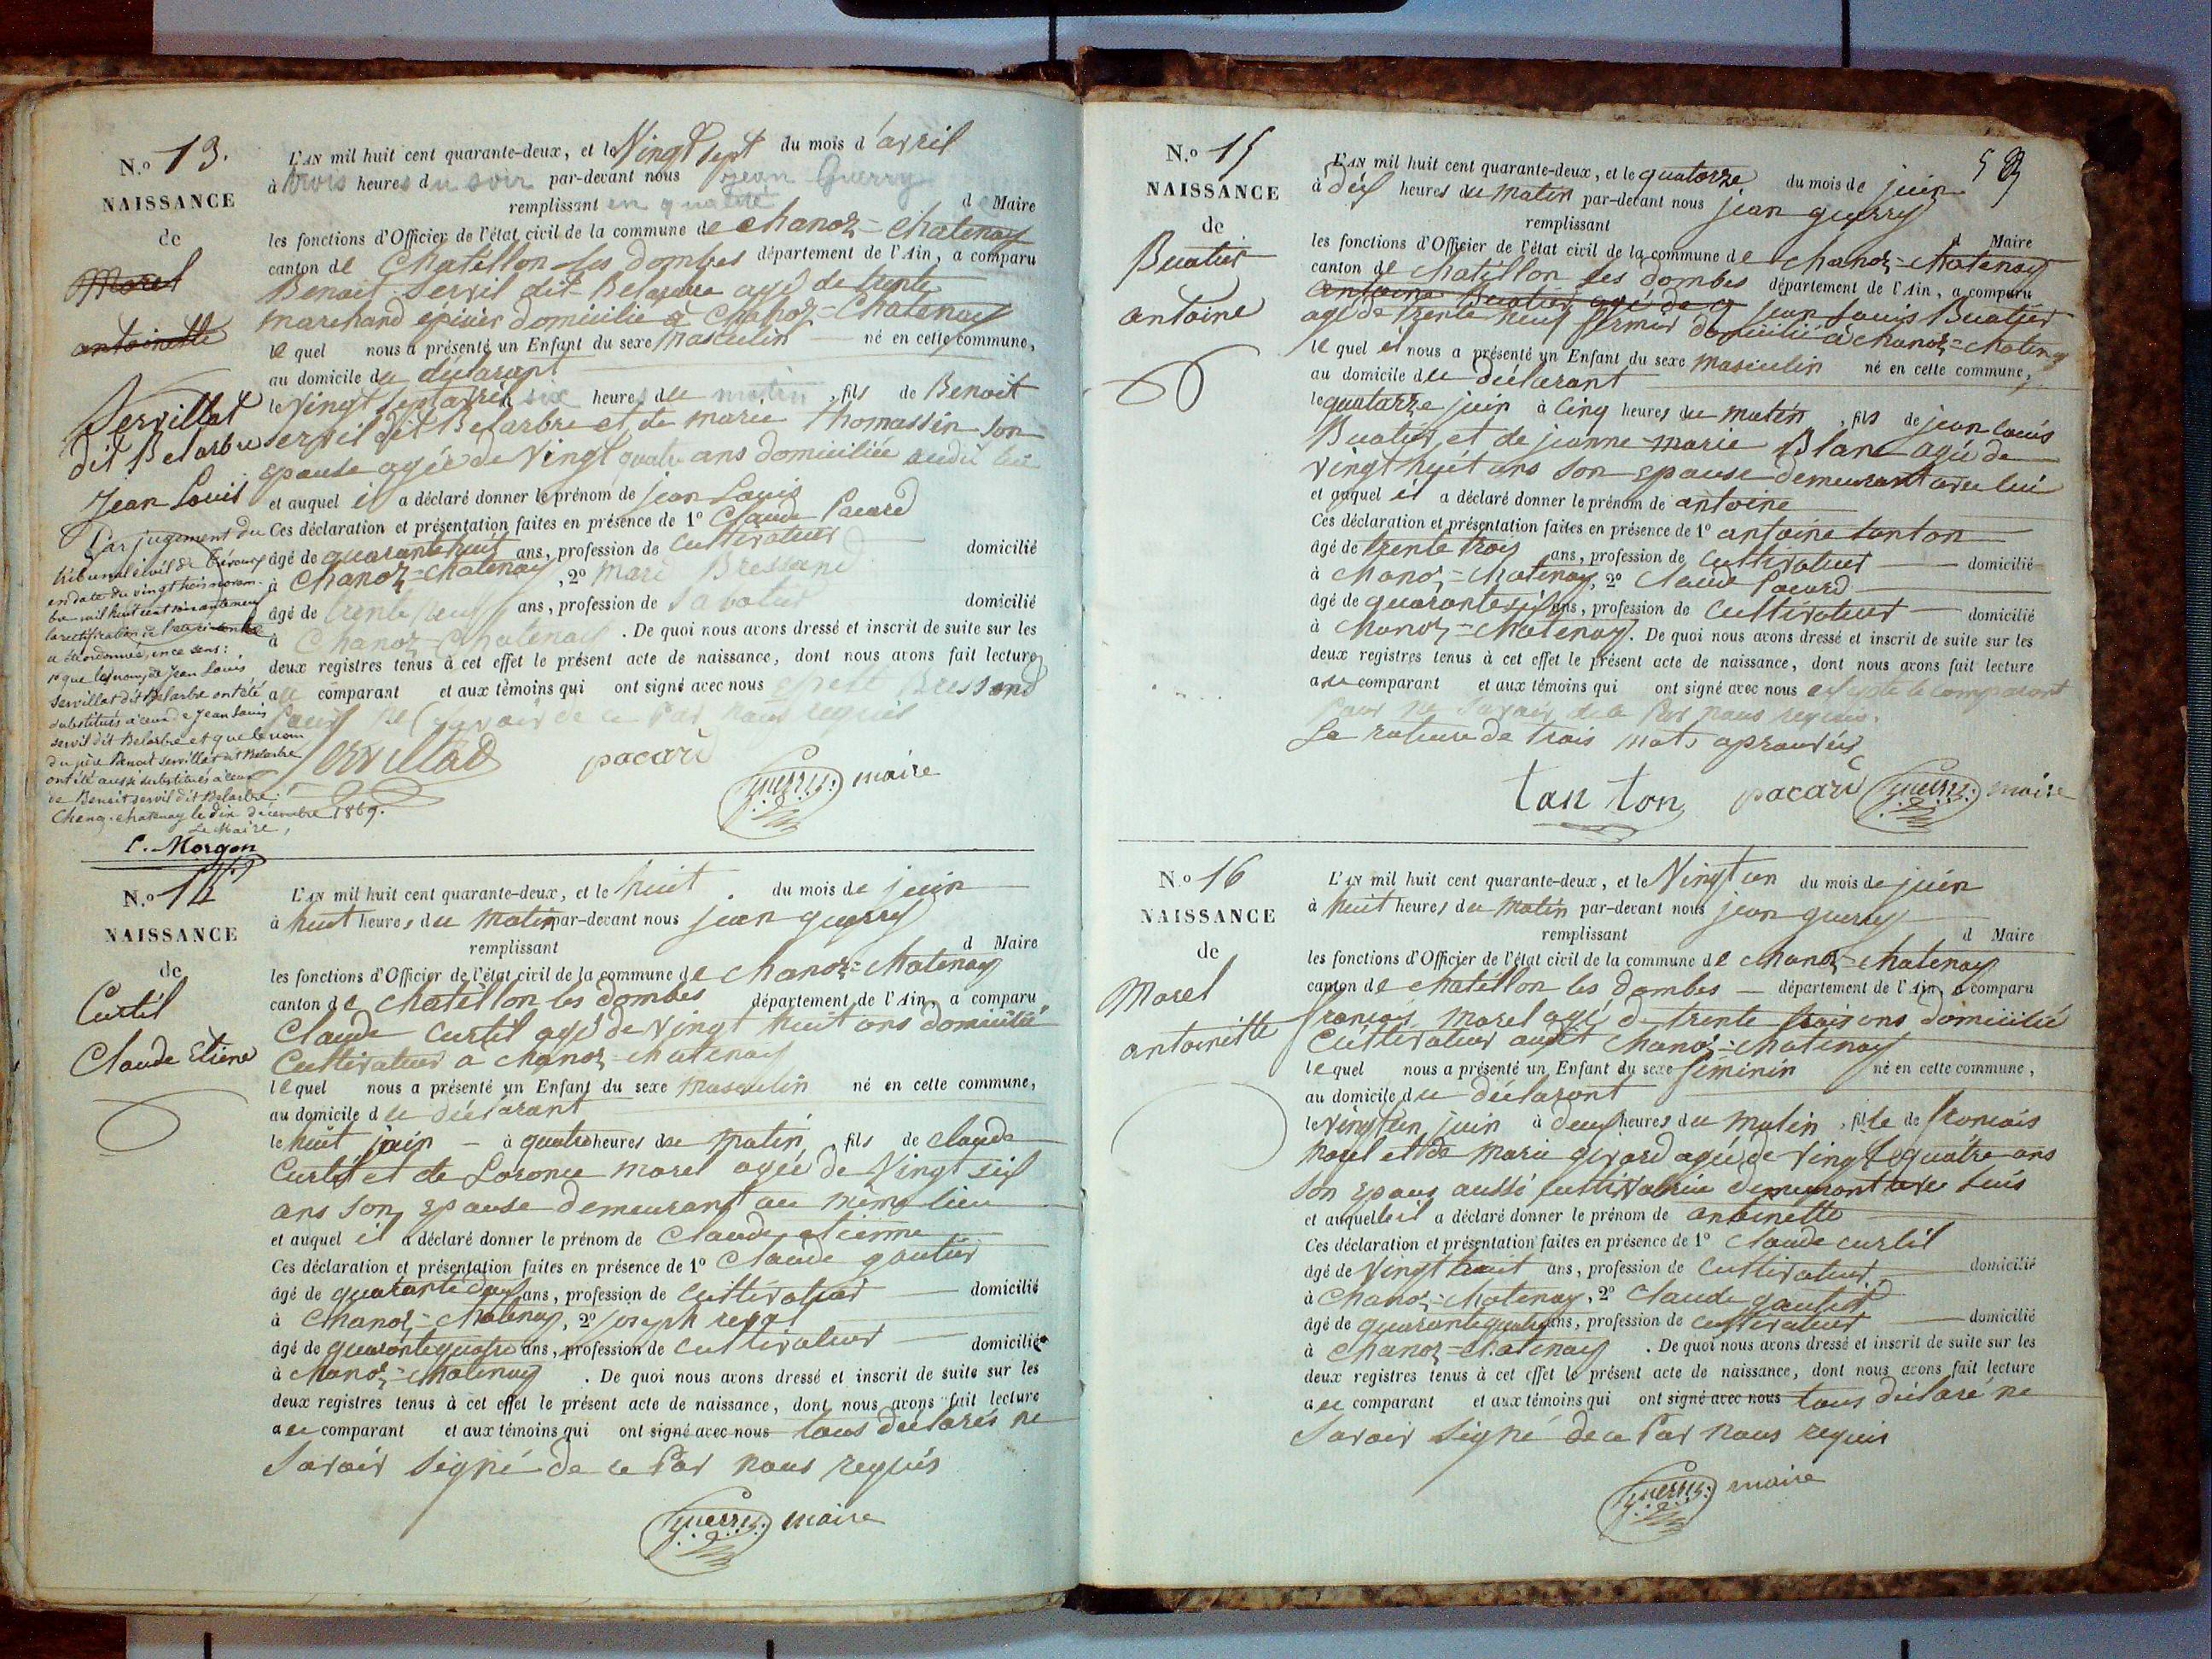 N.o 13.
NAISSANCE
de
Morel
antoinette
Servillat
dit Belarbre
Jean Louis
Par jugement du
tribunal civil de Trévoux
en date du vingt trois novem-
bre mil huit cent soixante neuf
la rectification de l'acte ci-contre
a été ordonnée, en ce sens:
1o que les noms de Jean Louis
Servillat dit Belarbre ont été
substitués à ceux de Jean Louis
servil dit Belarbre et que le nom
du père Benoit Servillat dit Belarbre
ont été aussi substitués à ceux
de Benoit servil dit Belarbre.
Chanoz-chatenay le dix décembre 1869.
Le Maire,
C. Morgon
L'AN mil huit cent quarante-deux, et le Vingt sept du mois d'avril
à trois heures du soir par-devant nous jean Guerry
remplissant en qualité de Maire
les fonctions d'Officier de l'état civil de la commune de chanoz=chatenay
canton de Chatillon les dombes département de l'Ain, a comparu
Benoit Servil dit Belarbre agé de trente
marchand episier domicilié a Chanoz=Chatenay
le quel nous a présenté un Enfant du sexe masculin né en cette commune,
au domicile du déclarant
le vingt sept avril à six heures du matin, fils de Benoit
servil dit Belarbre et de marie thomassin son
epouse agée de Vingt quatre ans domiciliée audit lieu
et auquel il a déclaré donner le prénom de jean Louis
Ces déclaration et présentation faites en présence de 1o Claude Pacard
âgé de quarante huit ans, profession de cultivateur domicilié
à Chanoz=chatenay, 2o marc Bressand
âgé de trente neuf ans, profession de sabotier domicilié
à Chanoz=Chatenay. De quoi nous avons dressé et inscrit de suite sur les
deux registres tenus à cet effet le présent acte de naissance, dont nous avons fait lecture
au comparant et aux témoins qui ont signé avec nous excepté Bressand
pour ne savoir de ce Par nous requis
Servillat pacard Guerry maire
N.o 14
NAISSANCE
de
Curtil
Claude Etiene
L'AN mil huit cent quarante-deux, et le huit du mois de juin
à huit heures du matin par-devant nous jean guerry
remplissant d Maire
les fonctions d'Officier de l'état civil de la commune de chanoz=chatenay
canton de chatillon les dombes département de l'Ain, a comparu
Claude Curtil agé de vingt huit ans domicilié
Cultivateur a chanoz=chatenay
le quel nous a présenté un Enfant du sexe masculin né en cette commune,
au domicile du déclarant
le huit juin - à quatre heures du matin, fils de claude
Curtil et de Lorence morel agée de Vingt six
ans son epouse demeurant au même lieu
et auquel il a déclaré donner le prénom de Claude etienne
Ces déclaration et présentation faites en présence de 1o Claude gautier
âgé de quarante deux ans, profession de cultivateur domicilié
à Chanoz=chatenay, 2o joseph
âgé de quarante quatre ans, profession de cultivateur domicilié
à chanoz=chatenay. De quoi nous avons dressé et inscrit de suite sur les
deux registres tenus à cet effet le présent acte de naissance, dont nous avons fait lecture
au comparant et aux témoins qui ont signé avec nous tous déclarés ne
Savoir Signé de ce Par nous requis
Guerry maire
59
N.o 15
NAISSANCE
de
Buatier
antoine
L'AN mil huit cent quarante-deux, et le quatorze du mois de juin
à dix heures du matin par-devant nous jean guerry
remplissant d Maire
les fonctions d'Officier de l'état civil de la commune de chanoz=chatenay
canton de chatillon les dombes département de l'Ain, a comparu
antoine Buatier agé de q jean Louis Buatier
agé de trente neuf fermier domicilié à chanoz=chatenay
le quel il nous a présenté un Enfant du sexe masculin né en cette commune,
au domicile du déclarant
le quatorze juin à cinq heures du matin, fils de jean louis
Buatier et de jeanne marie Blanc agée de
vingt huit ans son epouse demeurant avec lui
et auquel il a déclaré donner le prénom de antoine
Ces déclaration et présentation faites en présence de 1o antoine tanton
âgé de trente trois ans, profession de cultivateur domicilié
à chanoz=chatenay, 2o Claude Pacard
âgé de quarante six ans, profession de cultivateur domicilié
à chanoz=chatenay. De quoi nous avons dressé et inscrit de suite sur les
deux registres tenus à cet effet le présent acte de naissance, dont nous avons fait lecture
au comparant et aux témoins qui ont signé avec nous excepté le comparant
Pour ne Savoir de ce Par nous requis.
La rature de trois mots aprouvés
tan ton pacard Guerry maire
N.o 16
NAISSANCE
de
Morel
antoinette
L'AN mil huit cent quarante-deux, et le Vingt un du mois de juin
à huit heures du matin par-devant nous jean guerry
remplissant d Maire
les fonctions d'Officier de l'état civil de la commune de chanoz=chatenay
canton de chatillon les dombes — département de l'Ain, a comparu
françois morel agé de trente trois ans domicilié
Cultivateur audit chanoz=chatenay
le quel nous a présenté un Enfant du sexe féminin né en cette commune,
au domicile du déclarant
le vingt un juin à deux heures du matin, fille de francois
morel et de marie givard agée de vingt quatre ans
son epouse aussi cultivatrice demeurant avec Luis
et auquelle il a déclaré donner le prénom de antoinette
Ces déclaration et présentation faites en présence de 1o Claude curtil
âgé de Vingt huit ans, profession de Cultivateur domicilié
à Chanoz=chatenay, 2o Claude gautier
âgé de quarante quatre ans, profession de cultivateur domicilié
à chanoz=chatenay. De quoi nous avons dressé et inscrit de suite sur les
deux registres tenus à cet effet le présent acte de naissance, dont nous avons fait lecture
au comparant et aux témoins qui ont signé avec nous tous déclaré ne
Savoir Signé de ce Par nous requis
Guerry maire